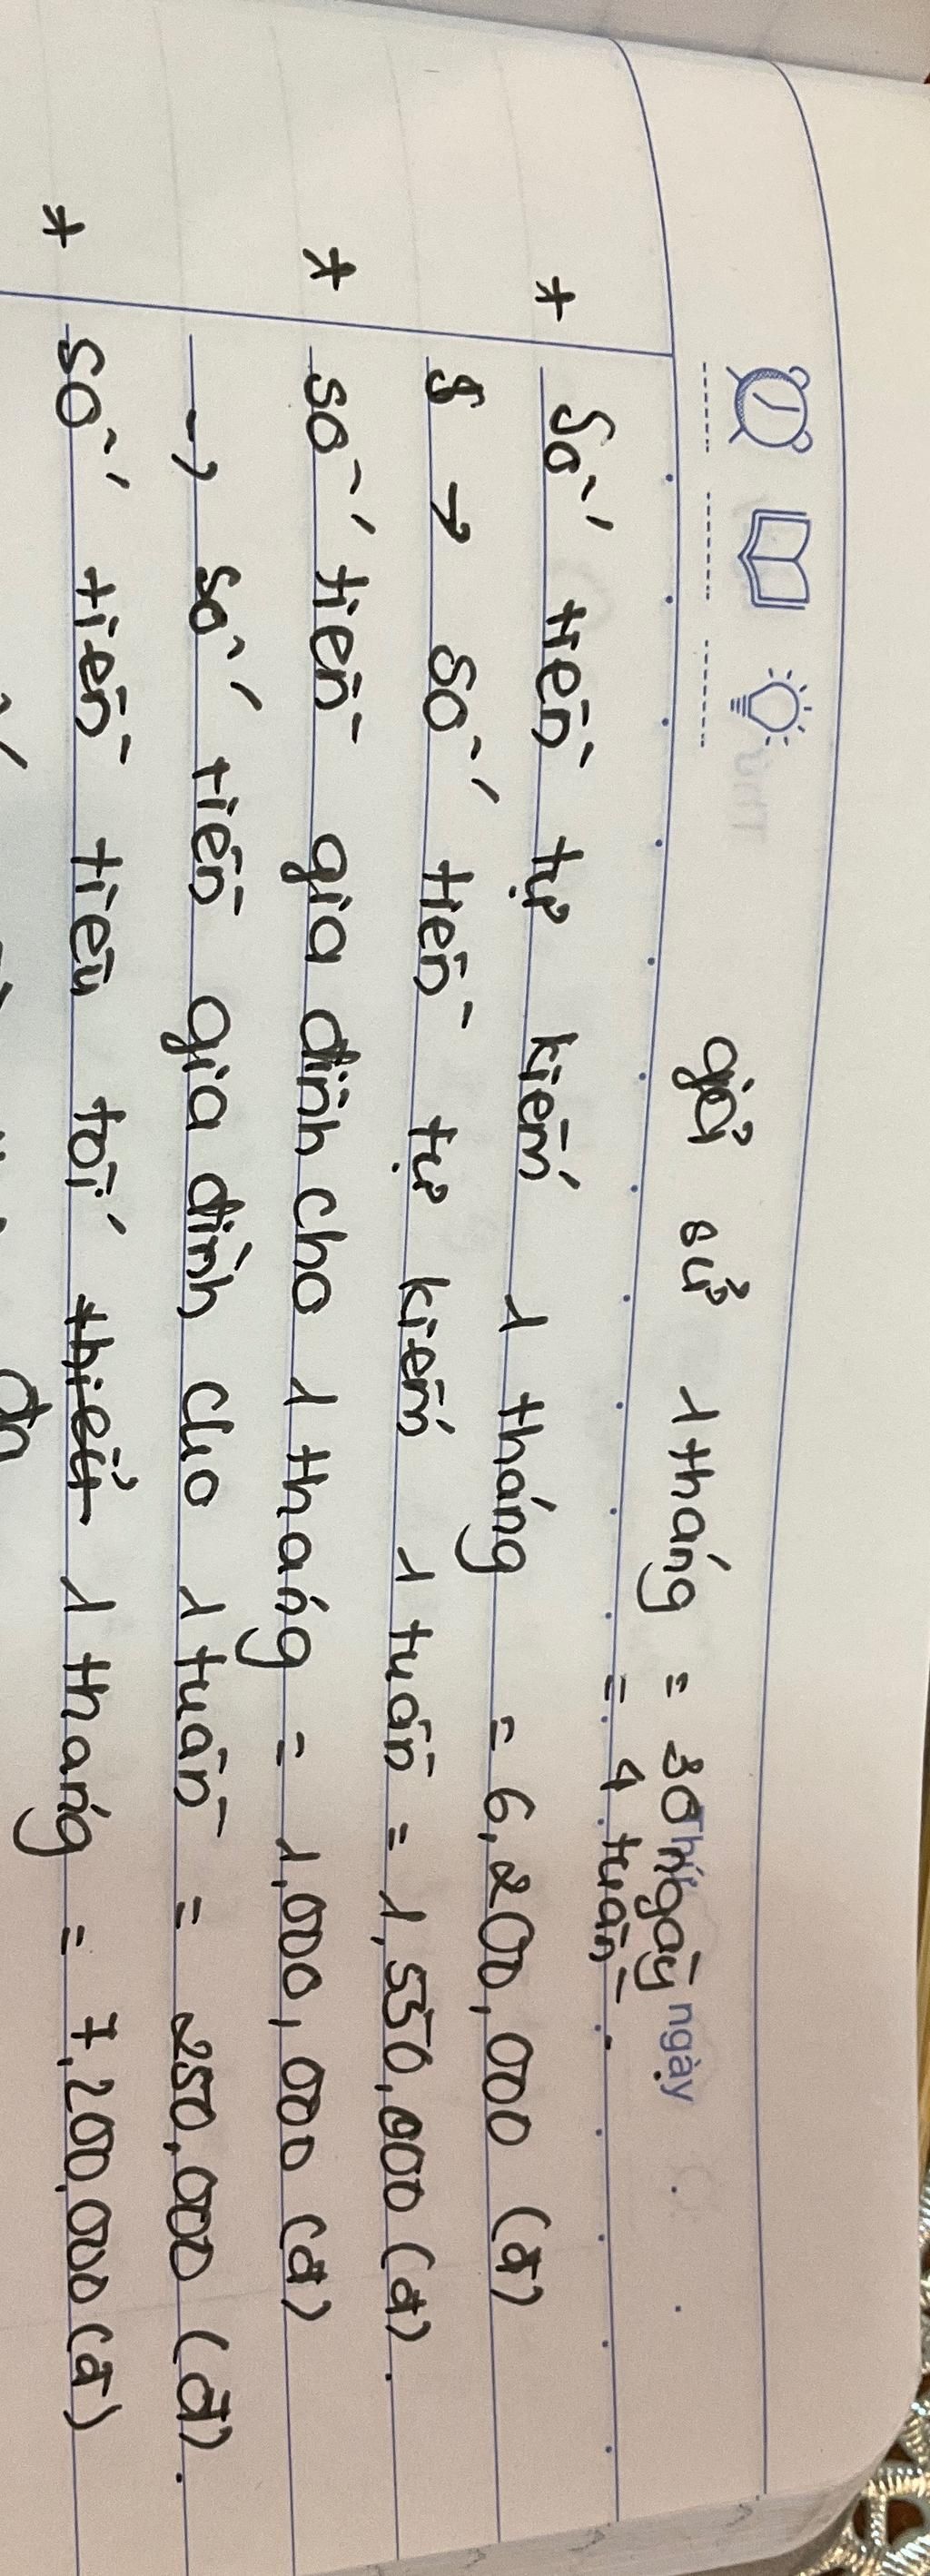 giả sử 1 tháng = 30 ngày
= 4 tuần.
* Số tiền tự kiếm 1 tháng = 6,200,000 (đ)
→ số tiền tự kiếm 1 tuần = 1,550,000 (đ).
* số tiền gia đình cho 1 tháng = 1,000,000 (đ)
→ số tiền gia đình cho 1 tuần = 250,000 (đ).
* số tiền tiêu tối thiểu 1 tháng = 7,200,000 (đ)